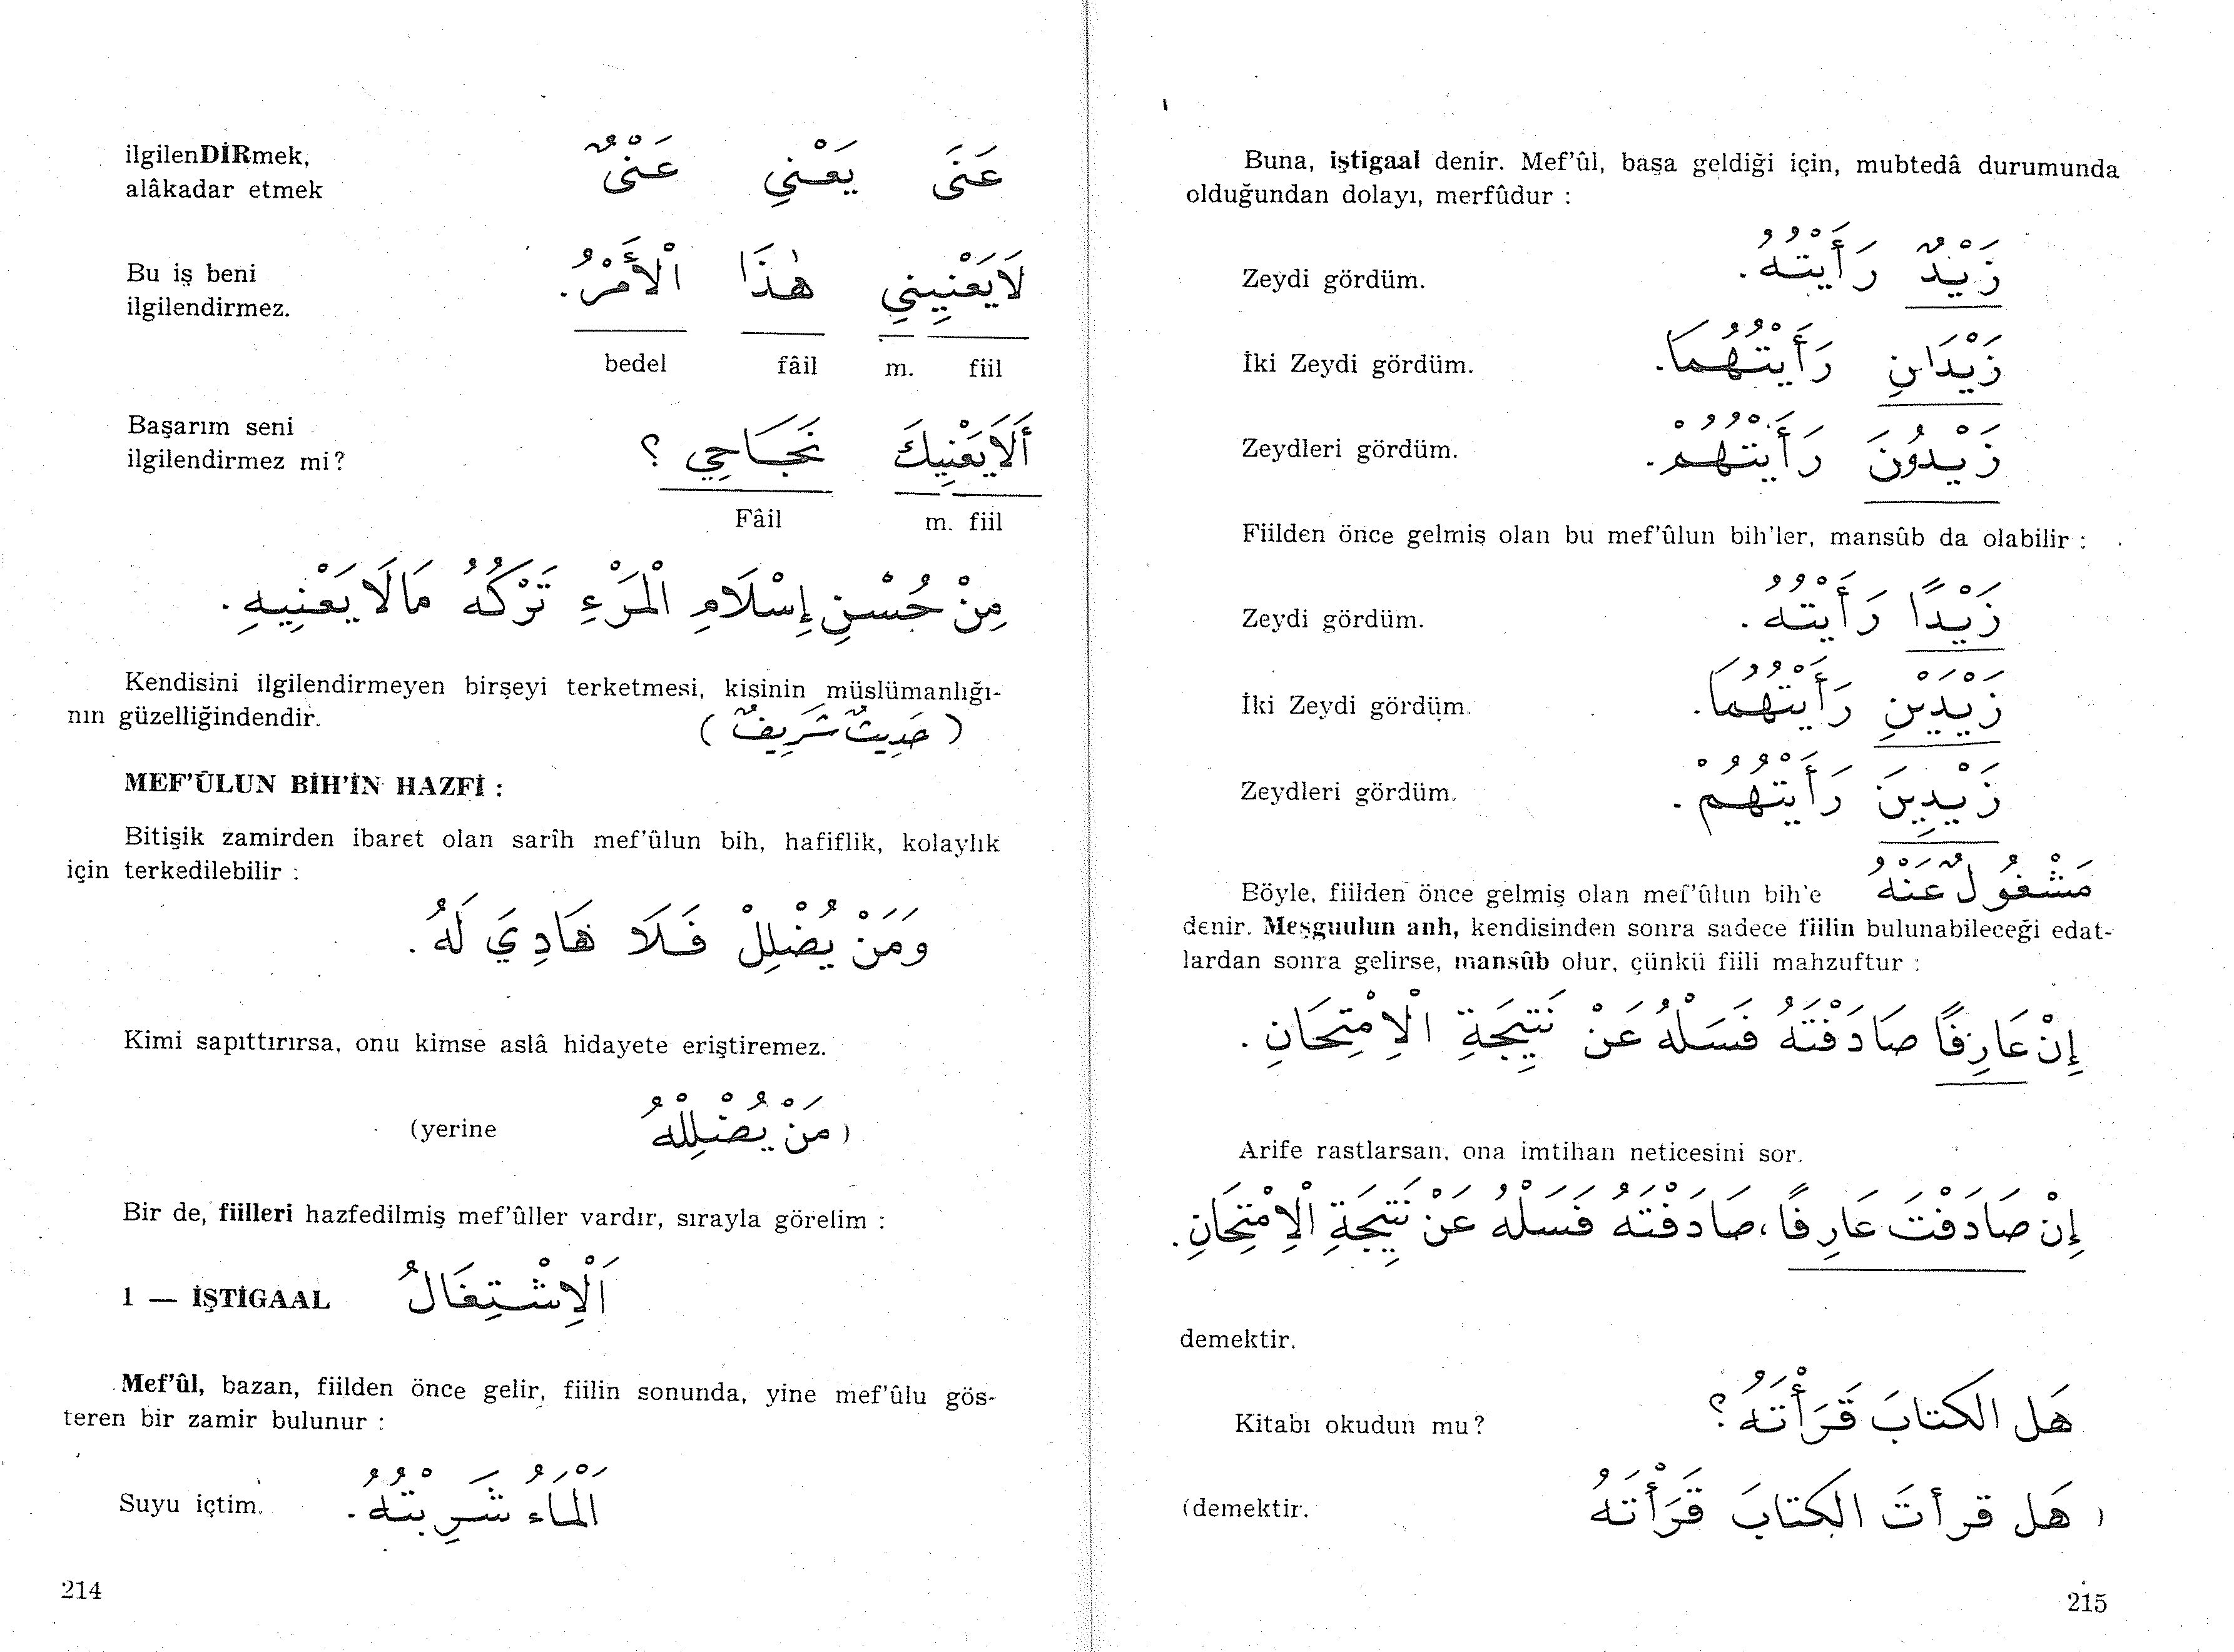 ilgilenDİRmek, عَنَى يَعْنِي عَنْيٌ
alâkadar etmek
Bu iş beni لَايَعْنِينِي هٰذَا الْأَمْرُ.
ilgilendirmez.
bedel fâil m. fiil
Başarım seni أَلَايَعْنِيكَ نَجَاحِي ؟
ilgilendirmez mi?
Fâil m. fiil
مِنْ حُسْنِ إِسْلَامِ الْمَرْءِ تَرْكُهُ مَالَا يَعْنِيهِ.
Kendisini ilgilendirmeyen birşeyi terketmesi, kişinin müslümanlığı-
nın güzelliğindendir. ( حَدِيثٌ شَرِيفٌ )
MEF'ÛLUN BİH'İN HAZFİ :
Bitişik zamirden ibaret olan sarîh mef'ûlun bih, hafiflik, kolaylık
için terkedilebilir :
وَمَنْ يُضْلِلْ فَلَا هَادِيَ لَهُ.
Kimi sapıttırırsa, onu kimse aslâ hidayete eriştiremez.
(yerine مَنْ يُضْلِلْهُ )
Bir de, fiilleri hazfedilmiş mef'ûller vardır, sırayla görelim :
1 — İŞTİGAAL اَلْاِشْتِغَالُ
Mef'ûl, bazan, fiilden önce gelir, fiilin sonunda, yine mef'ûlu gös-
teren bir zamir bulunur :
Suyu içtim. اَلْمَاءُ شَرِبْتُهُ.
214
Buna, iştigaal denir. Mef'ûl, başa geldiği için, mubtedâ durumunda
olduğundan dolayı, merfûdur :
Zeydi gördüm. زَيْدٌ رَأَيْتُهُ.
İki Zeydi gördüm. زَيْدَانِ رَأَيْتُهُمَا.
Zeydleri gördüm. زَيْدُونَ رَأَيْتُهُمْ.
Fiilden önce gelmiş olan bu mef'ûlun bih'ler, mansûb da olabilir :
Zeydi gördüm. زَيْدًا رَأَيْتُهُ.
İki Zeydi gördüm. زَيْدَيْنِ رَأَيْتُهُمَا.
Zeydleri gördüm. زَيْدِينَ رَأَيْتُهُمْ.
Böyle, fiilden önce gelmiş olan mef'ûlun bih'e مَشْغُولٌ عَنْهُ
denir. Meşguulun anh, kendisinden sonra sadece fiilin bulunabileceği edat-
lardan sonra gelirse, mansûb olur, çünkü fiili mahzuftur :
إِنْ عَارِفًا صَادَفْتَهُ فَسَلْهُ عَنْ نَتِيجَةِ الْاِمْتِحَانِ.
Arife rastlarsan, ona imtihan neticesini sor.
إِنْ صَادَفْتَ عَارِفًا، صَادَفْتَهُ فَسَلْهُ عَنْ نَتِيجَةِ الْاِمْتِحَانِ.
demektir.
Kitabı okudun mu? هَل الكتابَ قَرَأْتَهُ؟
(demektir. هَل قرأتَ الكتابَ قَرَأْتَهُ )
215